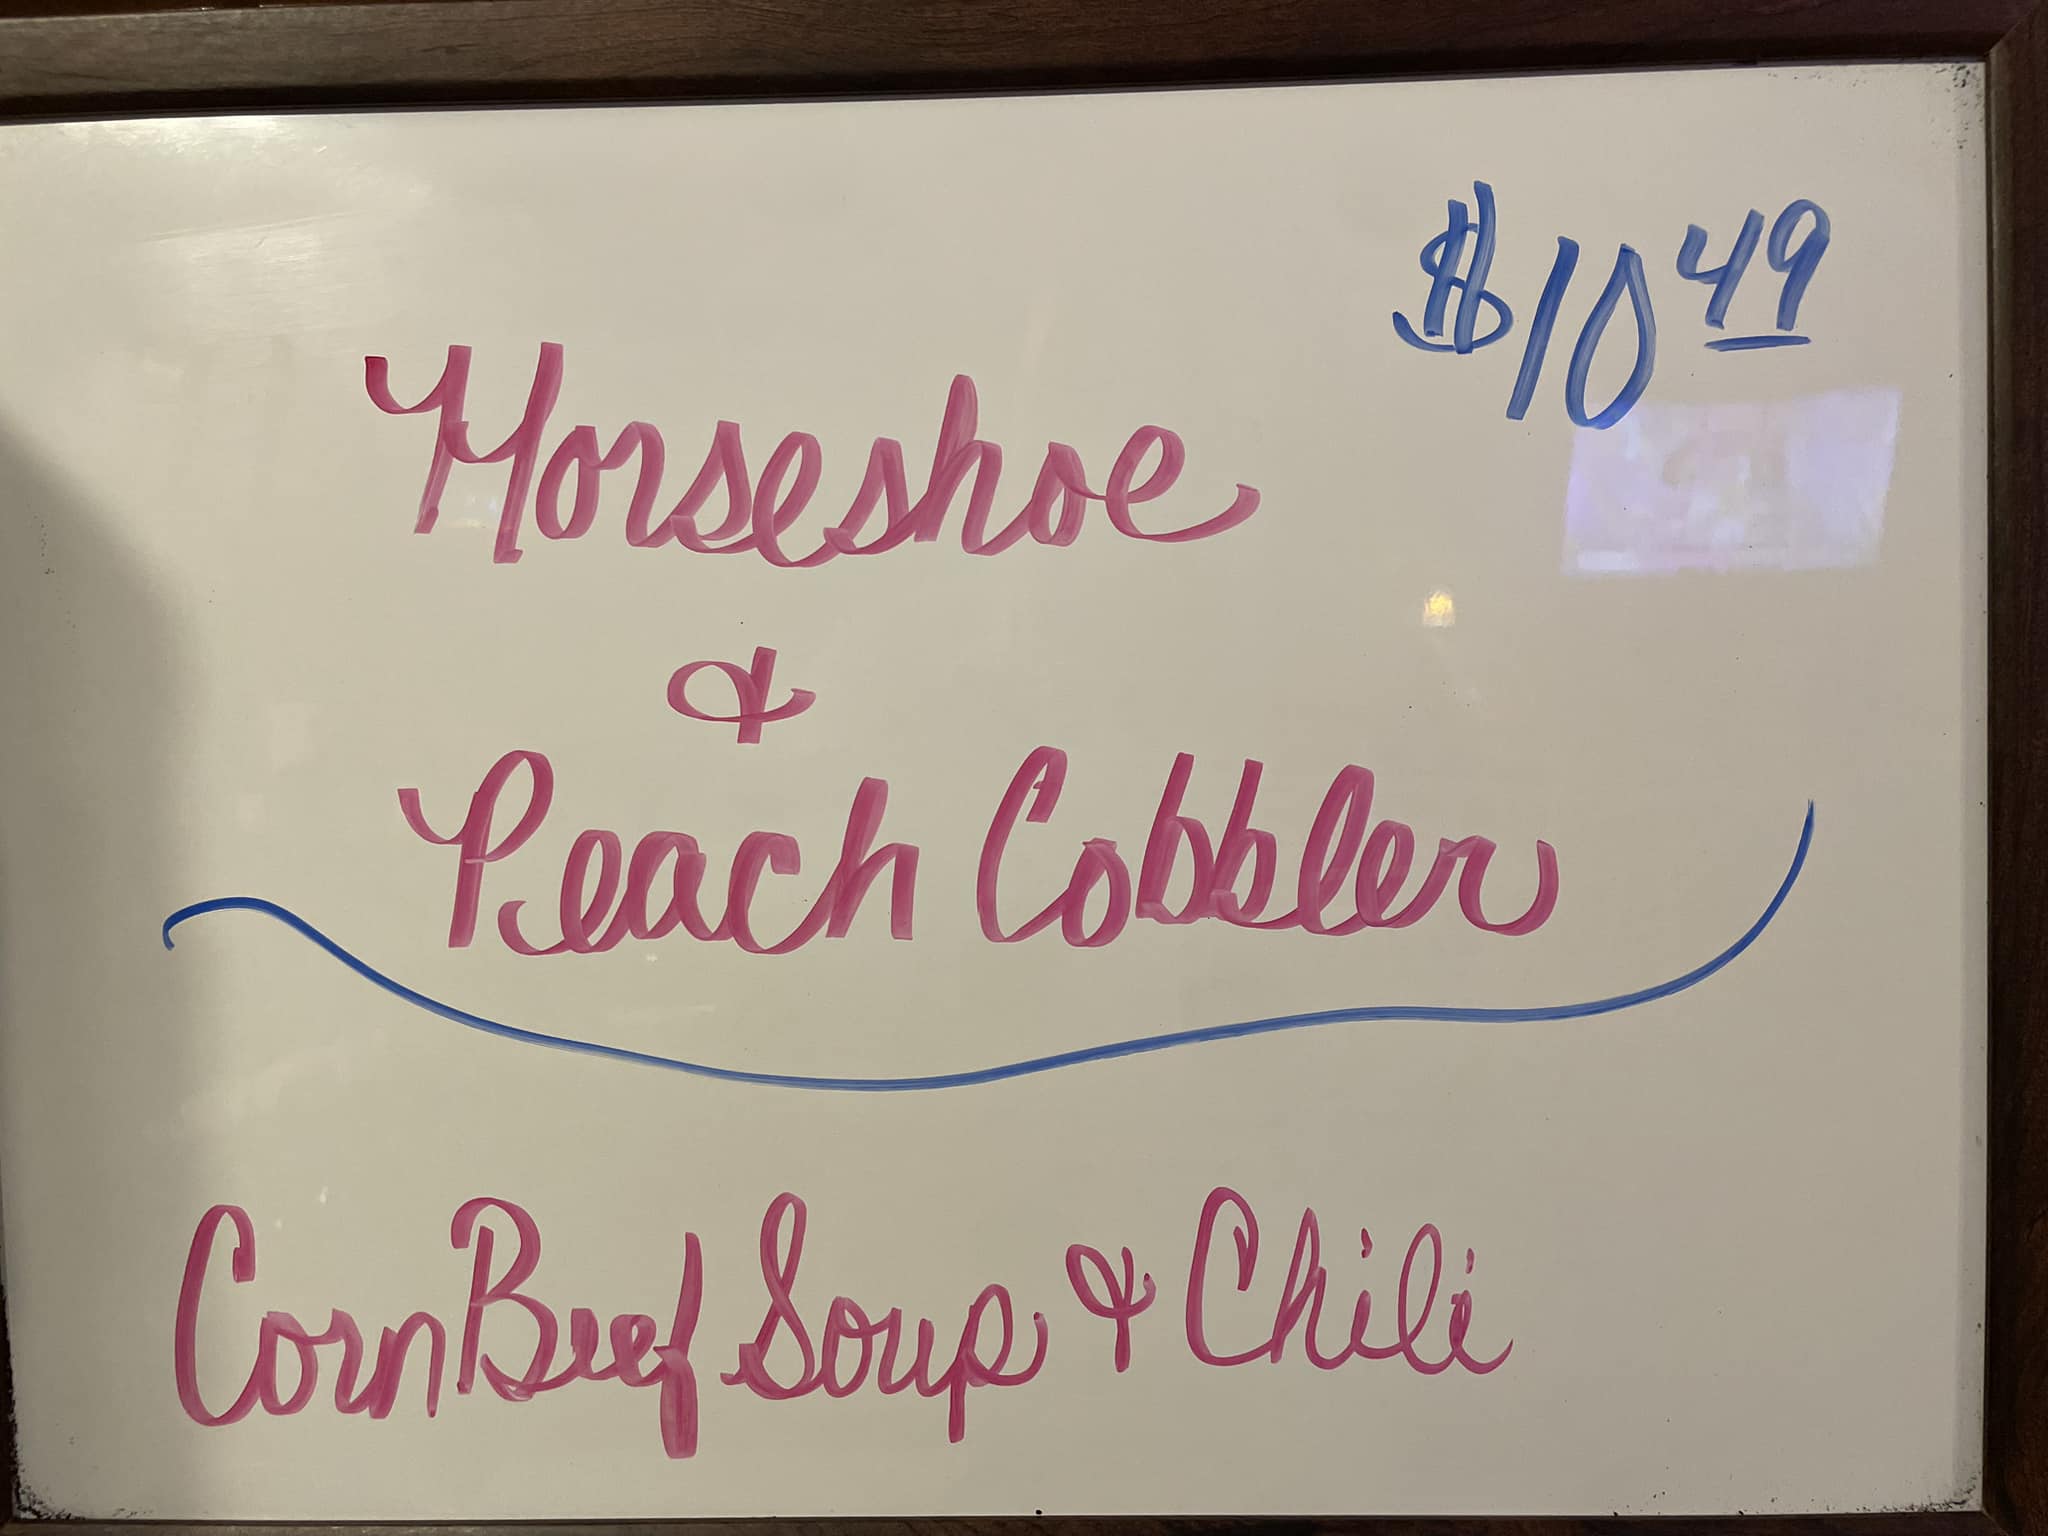 $10.49
Horseshoe
&
Peach Cobbler
Corn Beef Soup & Chili